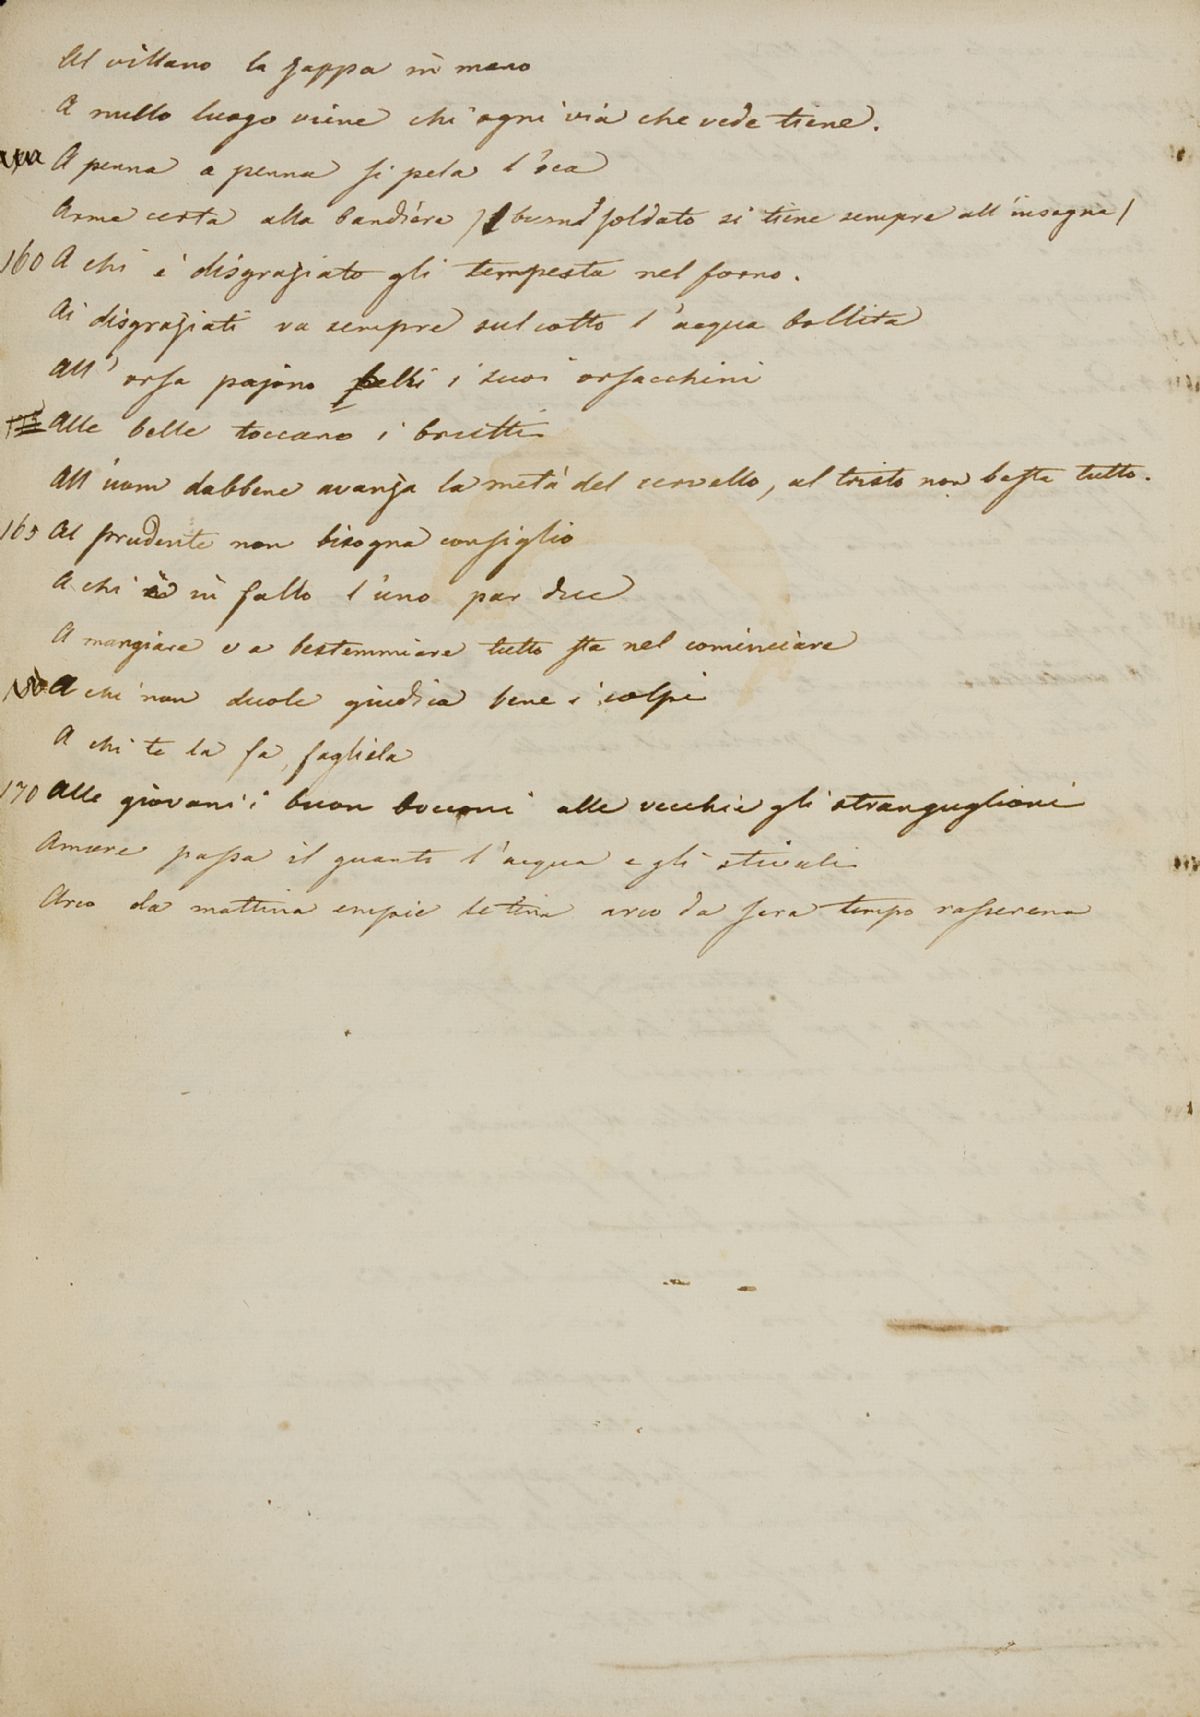 Al villano la zappa in mano
A nullo luogo viene chi ogni via che vede tiene.
A penna a penna si pela l'oca
Arme certa alla bandiera / buon soldato si tiene sempre all'insegna /
160 A chi è disgraziato gli tempesta nel forno.
Ai disgraziati va sempre sul cotto l'acqua bollita
All'orsa pajono belli i suoi orsacchini
Alle belle toccano i brutti
All'uom dabbene avanza la metà del cervello, al tristo non basta tutto.
165 Al prudente non bisogna consiglio
A chi è in fallo l'uno par due
A mangiare e a bestemmiare tutto sta nel cominciare
A chi non duole giudica bene i colpi
A chi te la fa, fagliela
170 Alle giovani i buon bocconi alle vecchie gli stranguglioni
Amore passa il guanto l'acqua e gli stivali
Arco da mattina empie le tina arco da sera tempo rasserena